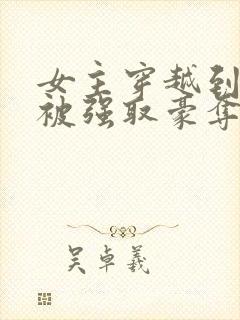 女主穿越到
被强取豪夺
吴卓羲